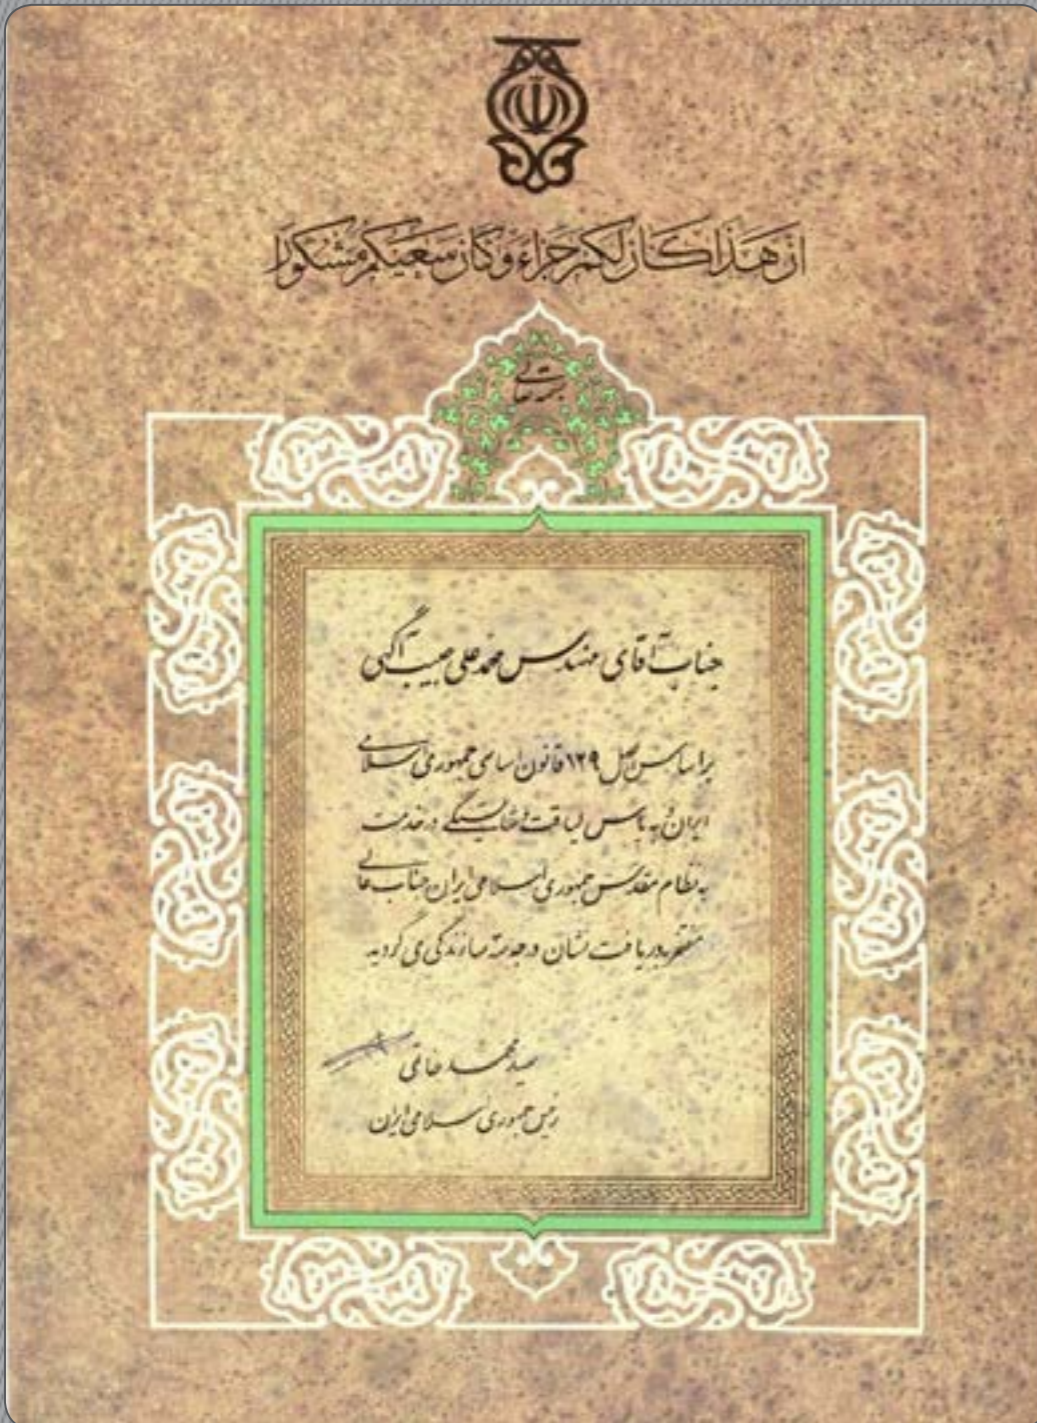 ان هذا کان لکم جزاء و کان سعیکم مشکورا
بسمه تعالی
جناب آقای مهندس محمد علی حبیب آگهی
براساس اصل ۱۲۹ قانون اساسی جمهوری اسلامی
ایران و به پاس لیاقت و شایستگی در خدمت
به نظام مقدس جمهوری اسلامی ایران جناب عالی
مفتخر به دریافت نشان درجه سه سازندگی می گردید
سید محمد خاتمی
رئیس جمهوری اسلامی ایران